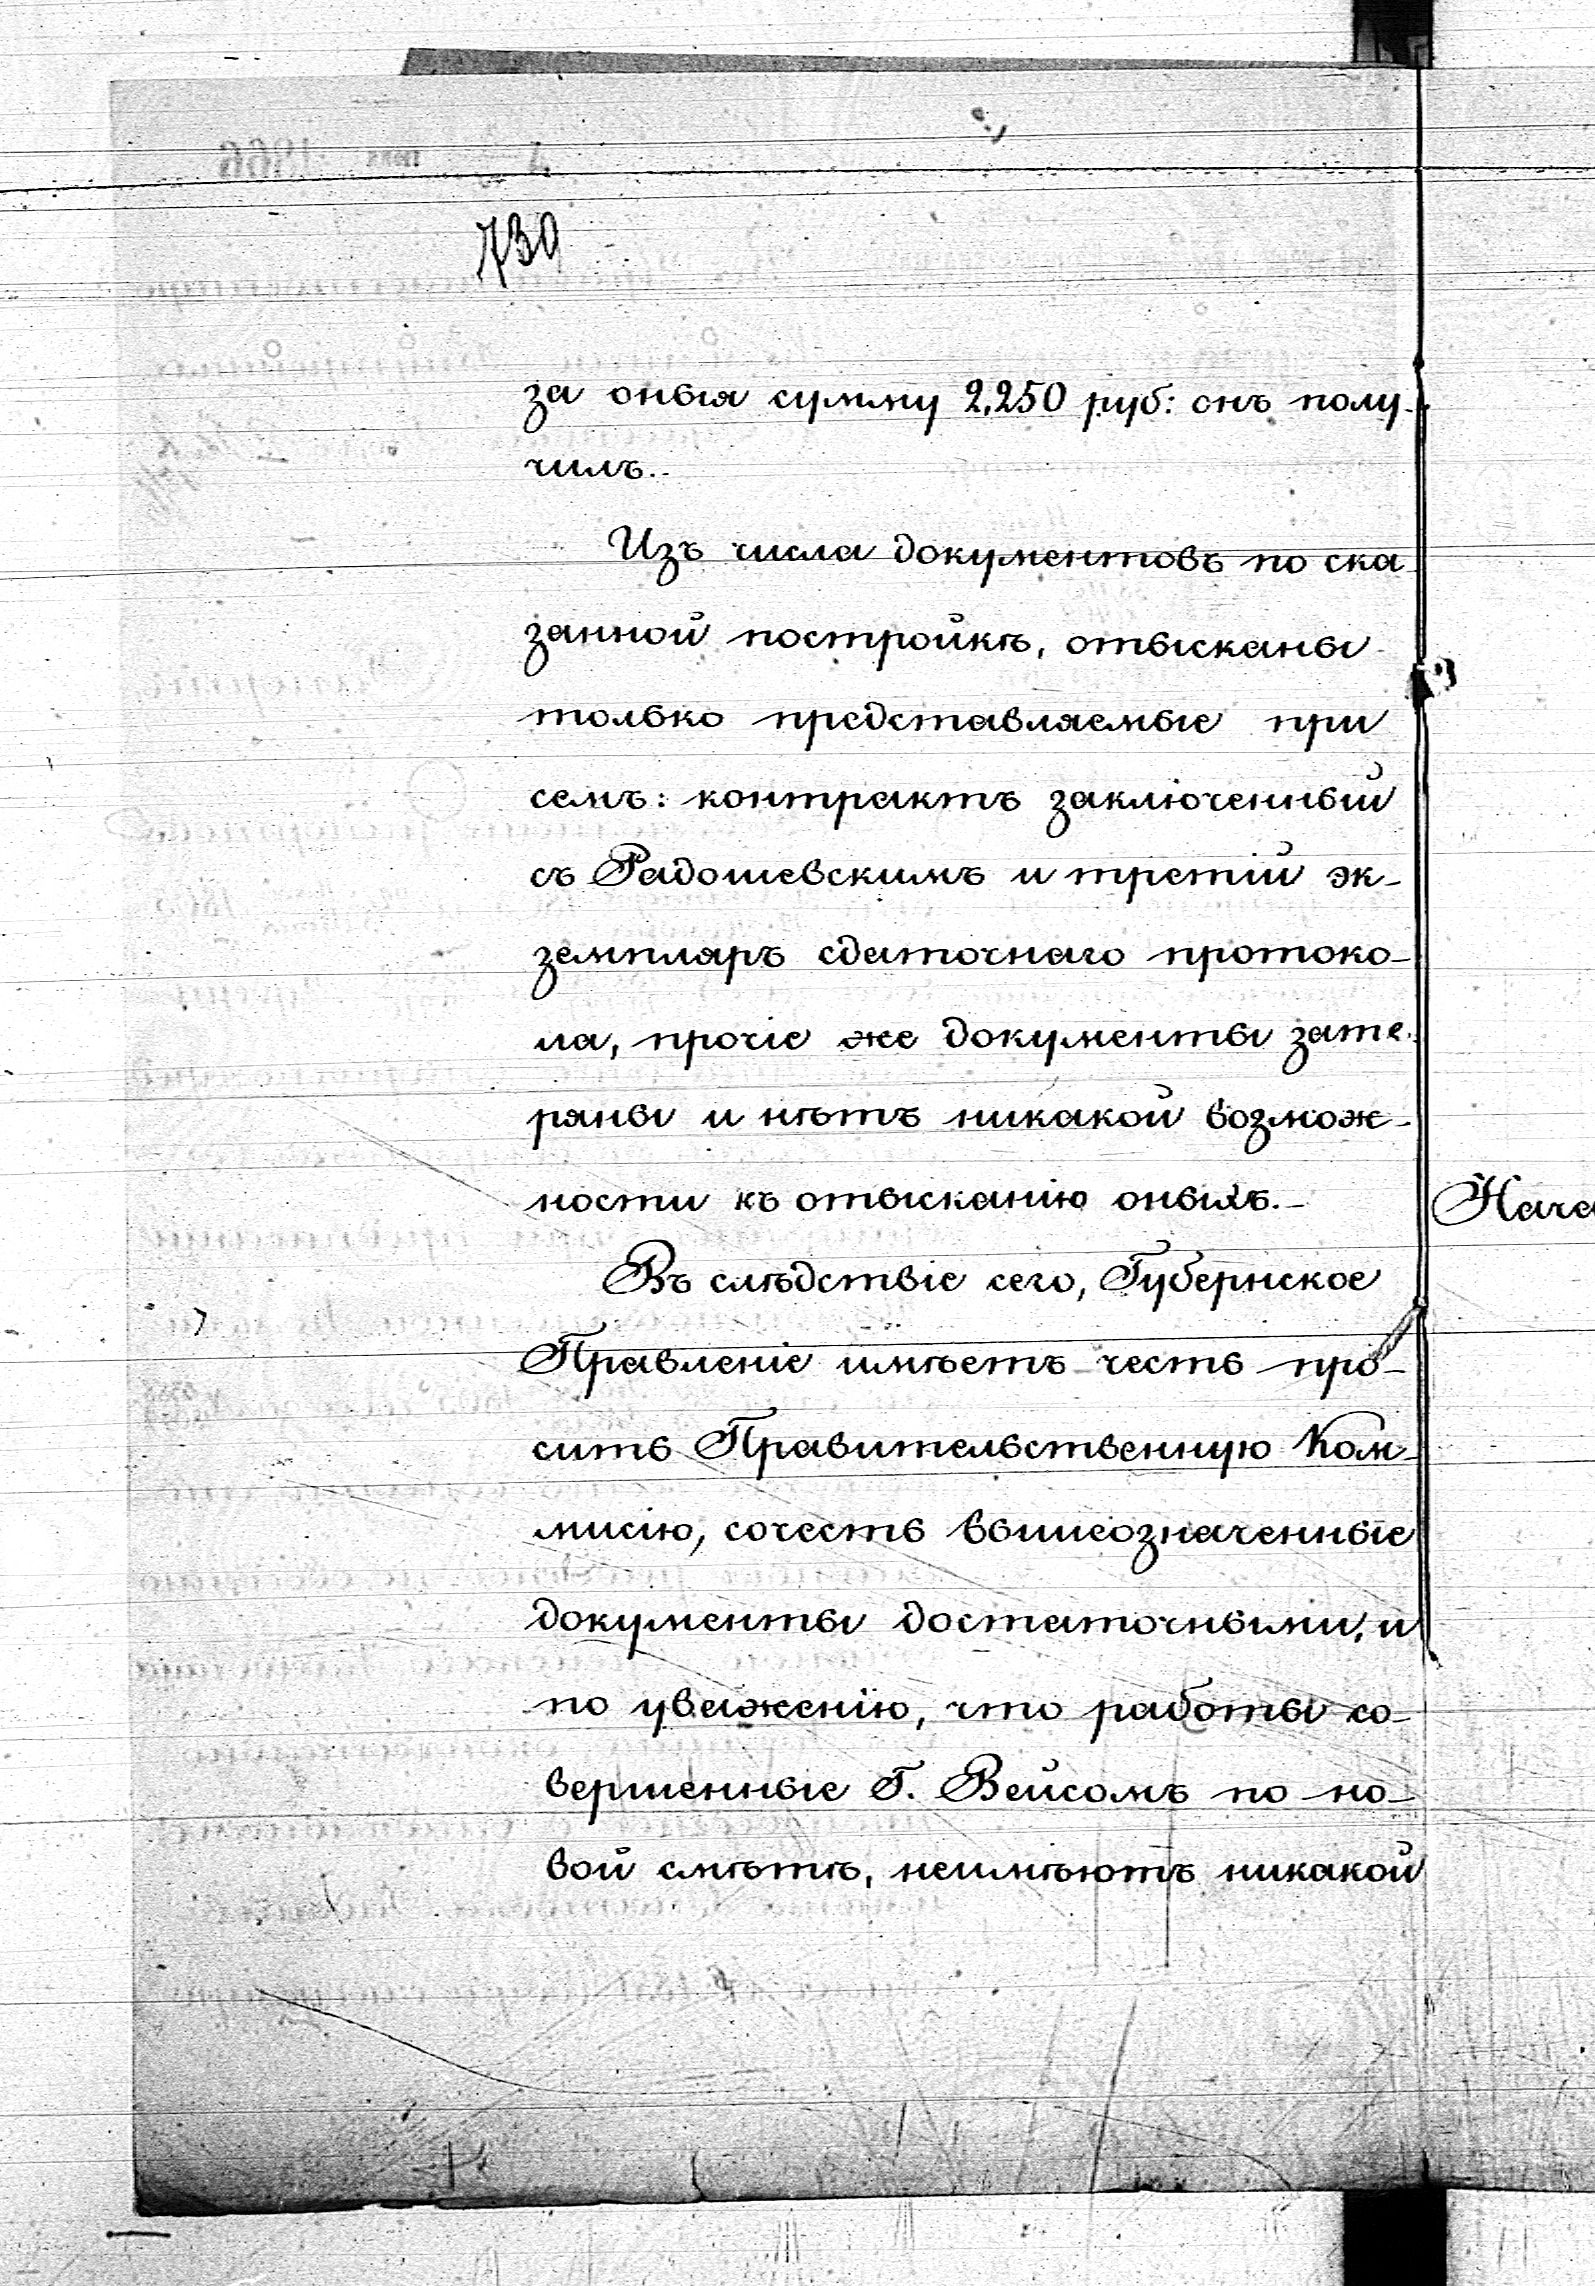 730
за оныя сумму 2,250 руб: онъ полу-
чилъ.-
Изъ числа документовъ по ска-
занной постройкѣ, отысканы
только представляемые при
семъ: контрактъ заключенный
съ Радошевскимъ и третій эк-
земпляръ сдаточнаго протоко-
ла, прочіе же документы зате-
ряны и нѣтъ никакой возмож-
ности къ отысканію оныхъ.-
Въ слѣдствіе сего, Губернское
Правленіе имѣетъ честь про-
сить Правительственную Ком-
мисію, сочесть вышеозначенные
документы достаточными, и
по уваженію, что работы со-
вершенные Г. Вейсомъ по но-
вой смѣтѣ, неимѣютъ никакой